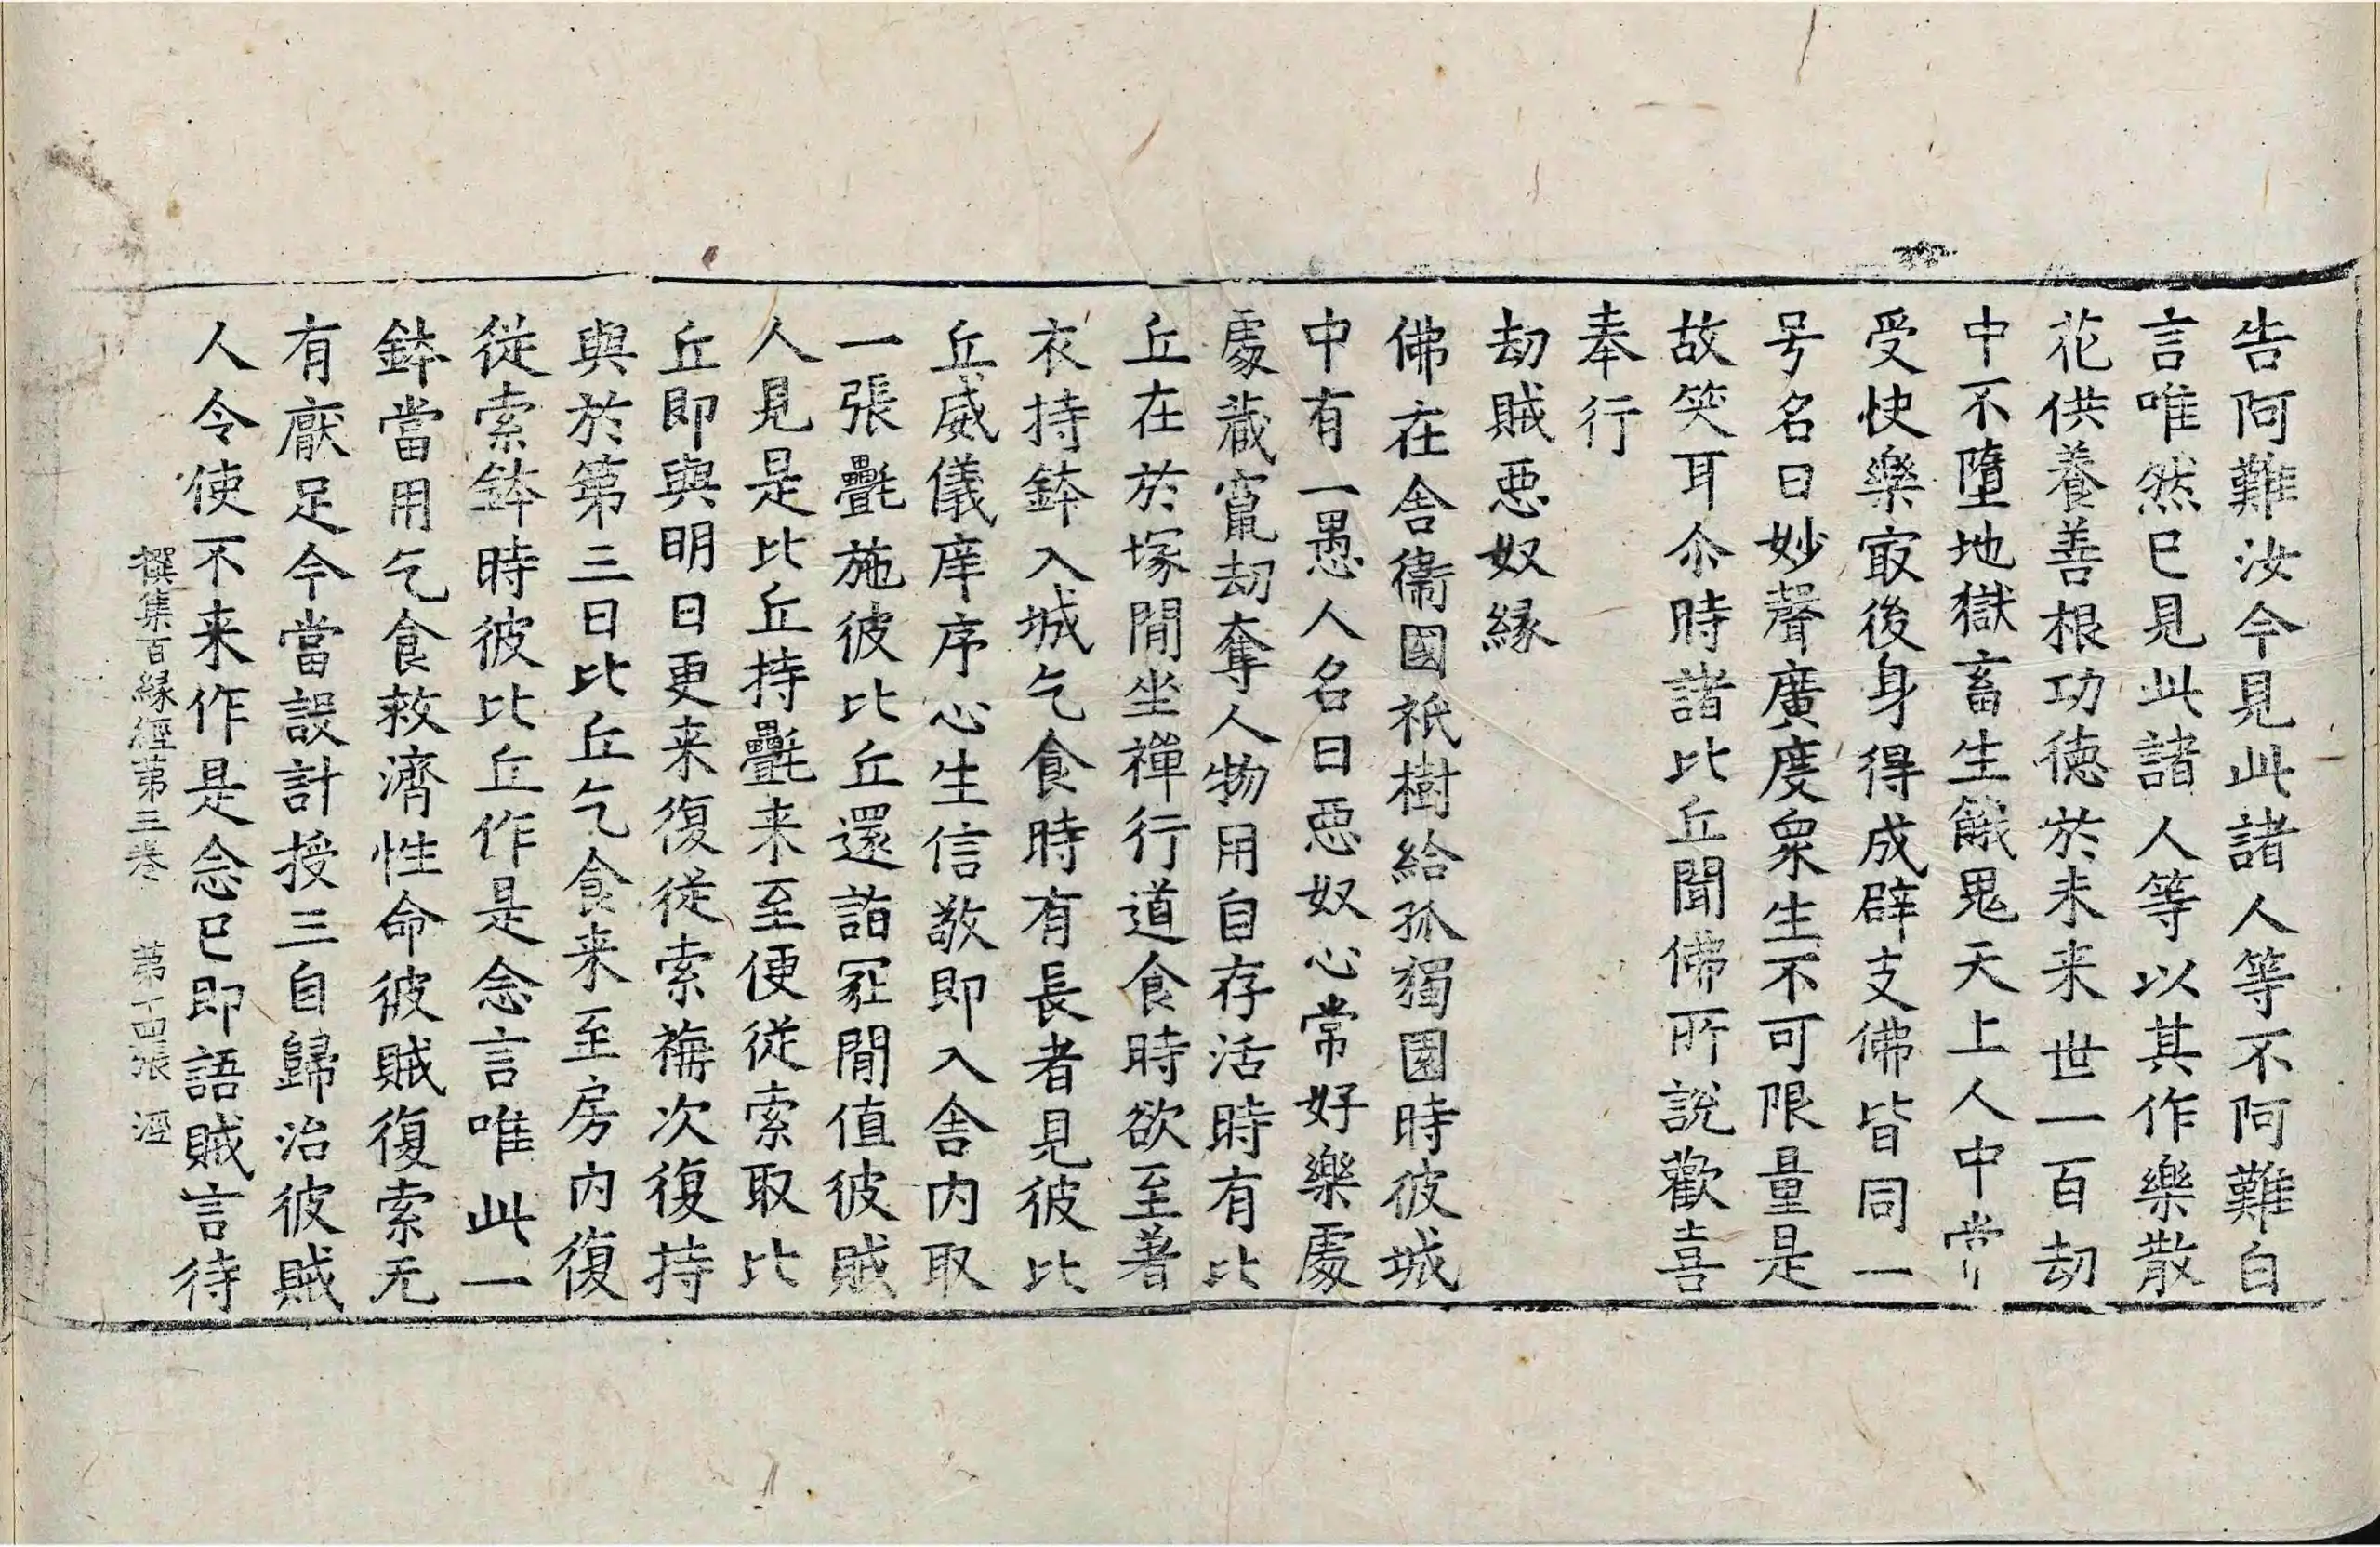 告阿難汝今見此諸人等不阿難白
言唯然已見此諸人等以其作樂散
花供養善根功德於未来世一百劫
中不墮地獄畜生餓鬼天上人中常
受快樂㝡後身得成辟支佛皆同一
号名曰妙聲廣度衆生不可限量是
故笑耳尒時諸比丘聞佛所說歡喜
奉行
劫賊惡奴緣
佛在舍衞國祇樹給孤獨園時彼城
中有一愚人名曰惡奴心常好樂處
處藏竄劫奪人物用自存活時有比
丘在於塚間坐禪行道食時欲至著
衣持鉢入城乞食時有長者見彼比
丘威儀庠序心生信敬即入舍内取
一張㲲施彼比丘還詣冢間值彼賊
人見是比丘持㲲来至便從索取比
丘即與明日更来復從索裓次復持
與於第三日比丘乞食来至房内復
從索鉢時彼比丘作是念言唯此一
鉢當用乞食救濟性命彼賊復索无
有厭足今當設計授三自歸治彼賊
人令使不来作是念已即語賊言待
撰集百緣經第三卷 第十四張 涇